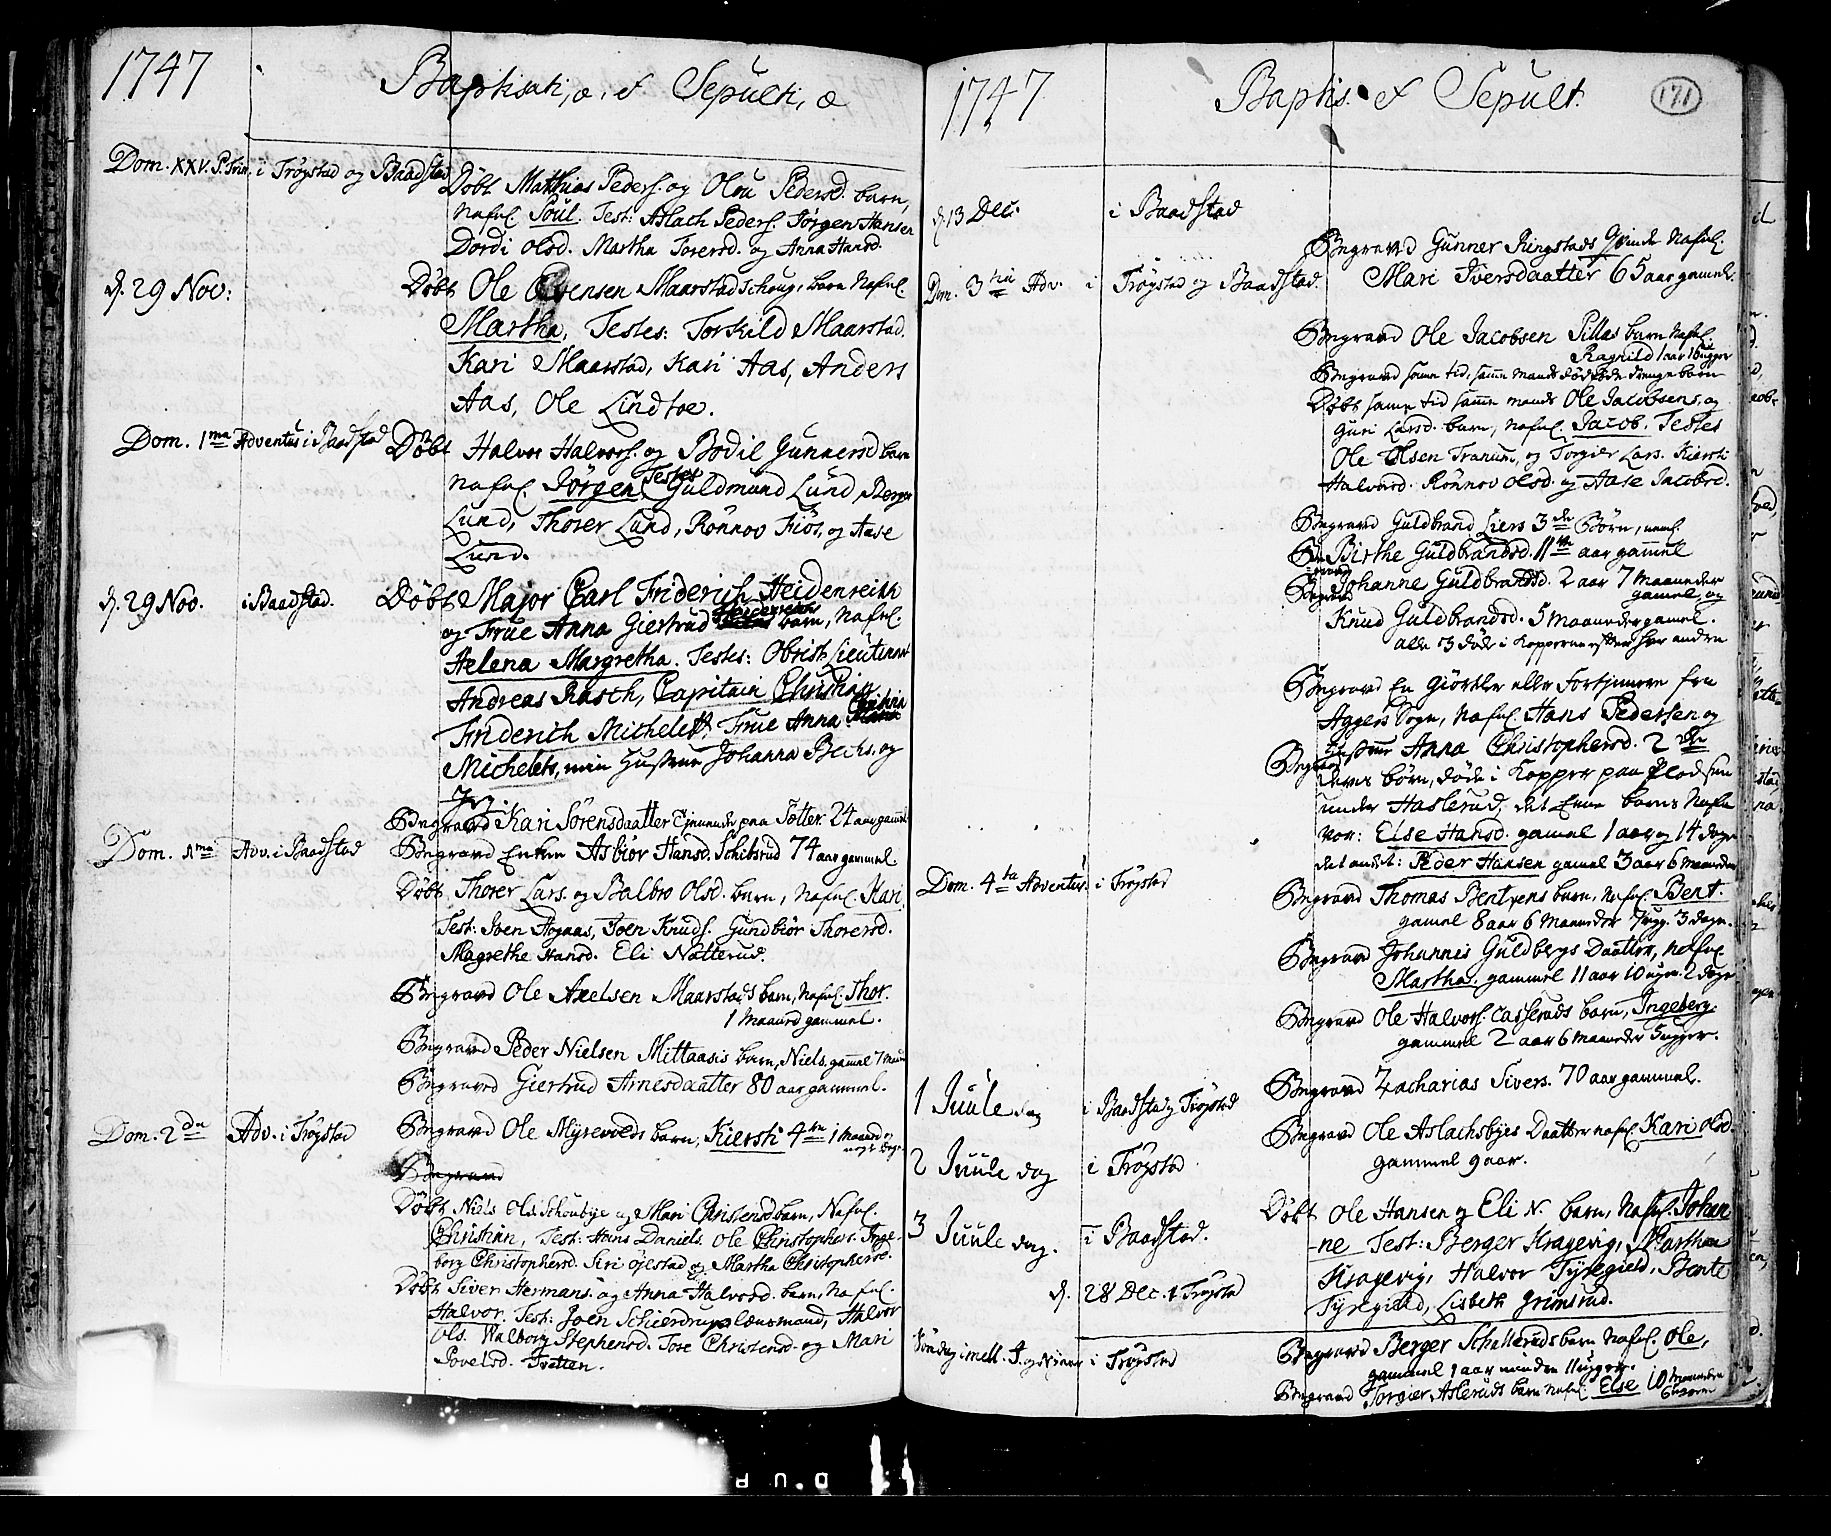 1747 Baptisati, æ. et Sepulti, æ
Dom. XXV. P. Trin. i Trøgstad og Baadstad
Døbt Matthias Peders. og Olou Pedersd. barn,
Nafnl. Poul. Test: Aslach Peders. Jørgen Hansen
Dordi Olsd. Martha Torersd. og Anna Hansd.
d. 29 Nov: Døbt Ole Evensen Maarstadschoug, barn Nafnl.
Martha, Testes: Torskild Maarstad.
Kari Maarstad, Kari Aas, Anders
Aas, Ole Lindtoe.
Dom. 1ma Adventus i Baadstad Døbt Halvor Halvors. og Bodil Gunnersd barn
Nafnl. Jørgen Testes Guldmund Lund, Børge
Lund, Thorer Lund, Rönnov Fiös, og Aase
Lund.
d. 29 Nov. i Baadstad. Døbt Major Carl Friderich Heidenreich
og Frue Anna Giertrud barn, Nafnl.
Helena Margretha. Testes: Obrist Lieutenant
Andreas Rasch, Capitain Christian
Friderich Michelet, Frue Anna Cathrina
Michelets, min Hustrue Johanna Bechs, og
Jeg.
Begravd Kari Sörensdaatter Tienende paa Totter 24 aar gamel
Dom. 1ma Adv. i Baadstad Begravd Enken Asbiør Hansd. Schibsrud 74 aar gammel.
Døbt Thorer Lars. og Balbro Olsd. barn, Nafnl. Kari.
Test: Joen Aagaas, Joen Knuds. Gundbiør Thorersd.
Magrethe Hansd. Eli Natterud.
Begravd Ole Axelsen Maarstads barn, Nafnl. Thor.
1 Maaned gammel.
Begravd Peder Nielsen Mittaasis barn, Niels. gamel 7 Maan
Begravd Giertrud Arnesdaatter 80 aar gammel.
Dom. 2da Adv. i Trøgstad Begravd Ole Myrevolds barn, Kiersti 1 Maaned og
nogle Dage
Begravd
Døbt Niels Ols. Schoubye og Mari Christensd barn, Nafnl.
Christian, Test: Hans Daniels. Ole Christophers. Inge-
borg Christophersd. Siri Øjestad og Martha Christophersd.
Døbt Siver Hermans. og Anna Halvorsd. barn, Nafnl.
Halvor. Test: Joen Schierdrup Lensmand, Halvor
Ols. Walborg Stephensd. Tore Christensd. og Mari
Povelsd. Tvetten.
1747 Baptis. et Sepult. 171
d. 13 Dec. i Baadstad
Begravd Gunner Ringstads Qvinde Nafnl.
Mari Iversdaatter 65 aar gamel.
Dom. 3tia Adv. i Trøgstad og Baadstad.
Begravd Ole Jacobsen Pillas barn Nafnl.
Ragnild 1 aar 16 uger
Begravd samme tid, samme Mands dødfødde Drengebarn
Døbt samme tid samme mands Ole Jacobsens, og
Guri Larsd. barn, Nafnl. Jacob. Testes
Ole Olsen Tranum, og Torgier Lars. Kiersti
Halvorsd. Rönnov Olsd. og Aase Jacobsd.
Begravd Guldbrand Liers 3de Børn, neml.
Birthe Guldbrandsd. 11 aar gammel
Begravd Johanne Guldbrandsd. 2 aar 7 maaneder
gamel, og
Knud Guldbrandsd. 5 maaneder gamel.
alle 3 døde i Kopperne efter hver andre
Begravd En Giørtler eller Fortinnere fra
Aggers Sogn, Nafnl. Hans Pedersen og
Hustrue Anna Christophersd. 2de
Begravd deres børn, døde i Kopper paa Pladsen
under Haslerud, det Eene barns Nafn
var: Else Hansd. gamel 1 aar og 14 dage
det andet: Peder Hansen gamel 3 aar 6 maaneder
Dom. 4ta Adventus. i Trøgstad
Begravd Thomas Bentsens barn, Nafnl. Bent.
gamel 8 aar 6 Maaneder 7 ug. 3 dage.
Begravd Johannes Guldbergs Daatter, Nafnl.
Martha. gammel 11 aar 10 uger 2 dage
Begravd Ole Halvors. Casseruds barn, Ingeberg.
gammel 2 aar 6 maaneder 5 uger.
1 Juule dag i Baadstad og Trøgstad Begravd Zacharias Sivers. 70 aar gammel.
2 Juule dag i Trøgstad Begravd Ole Aslachsbyes Daatter Nafnl. Kari Olsd.
gammel 9 aar.
3 Juule dag. i Baadstad. Døbt Ole Hansen og Eli N. barn, Nafnl. Johan-
-ne Test: Berger Kragevig, Marthea
Kragevig, Halvor Tyregield, Bente
d. 28 Dec. i Trøgstad Tyregield, Lisbeth Grimsrud.
Söndag imell. J. og Nyaar i Trøgstad Begravd Berger Schellerüds barn Nafnl. Ole,
gammel 1 aar minder 11 uger.
Begravd Torgier Asleruds barn Nafnl. Else 10 Maaneder
6 uger